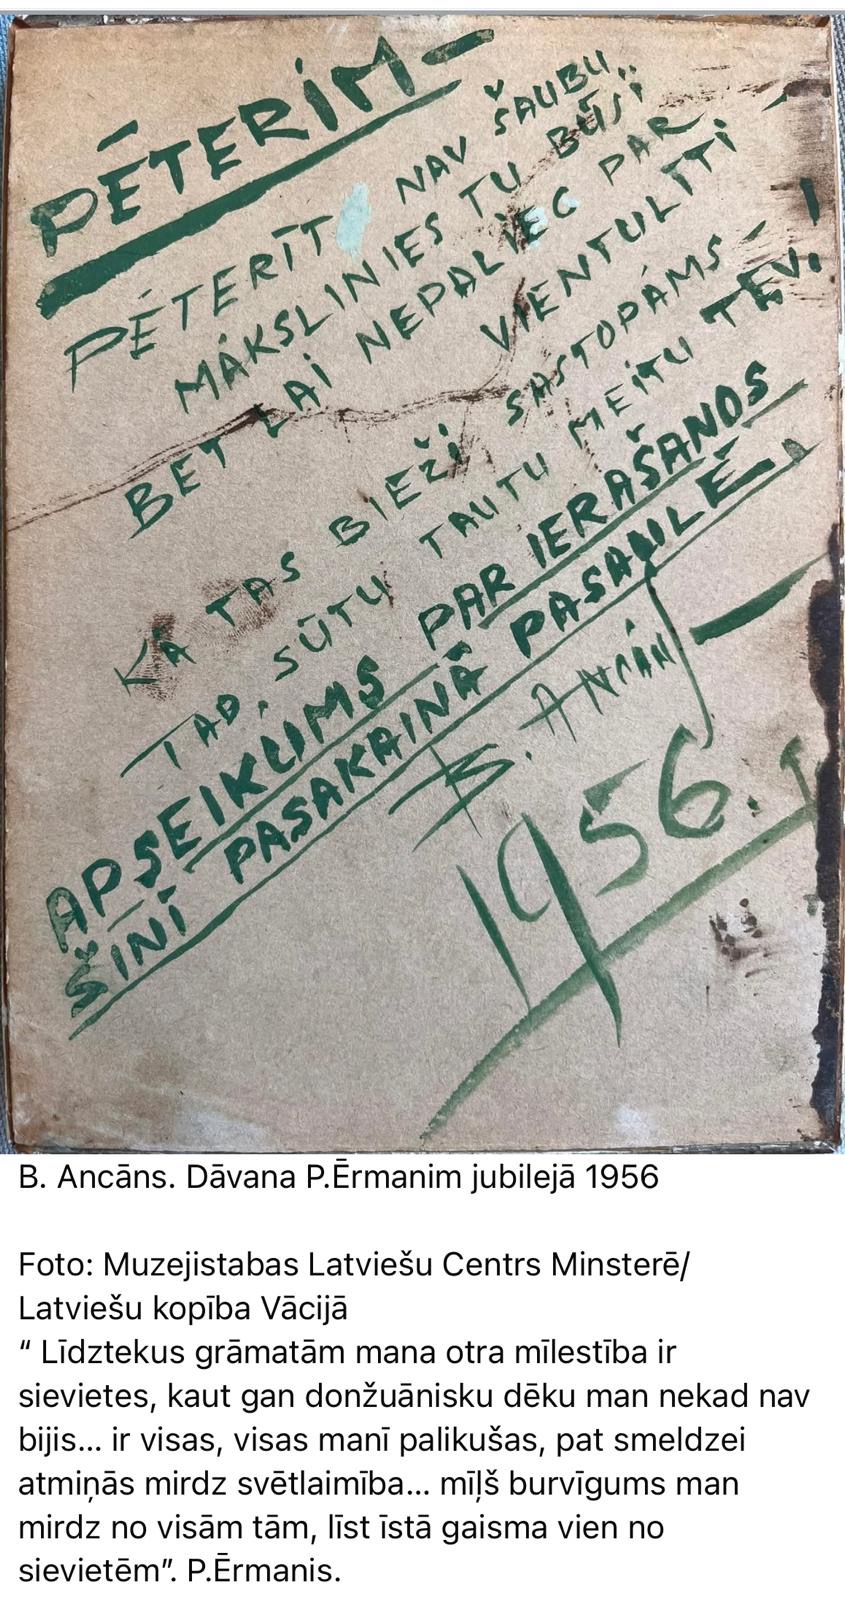 PĒTERIM —
PĒTERĪT NAV ŠAUBU,,
MĀKSLINIEKS TU BŪSI
BET LAI NEPALIEC PAR
VIENTULĪTI —
KĀ TAS BIEŽI SASTOPAMS — !
TAD, SŪTU TAUTU MEITU TEVI
APSEIKUMS PAR IERAŠANOS
ŠINĪ PASAKAINĀ PASAULĒ —
B. ANCĀN
1956. g
B. Ancāns. Dāvana P.Ērmanim jubilejā 1956
Foto: Muzejistabas Latviešu Centrs Minsterē/
Latviešu kopība Vācijā
“ Līdztekus grāmatām mana otra mīlestība ir
sievietes, kaut gan donžuānisku dēku man nekad nav
bijis... ir visas, visas manī palikušas, pat smeldzei
atmiņās mirdz svētlaimība... mīļš burvīgums man
mirdz no visām tām, līst īstā gaisma vien no
sievietēm”. P.Ērmanis.